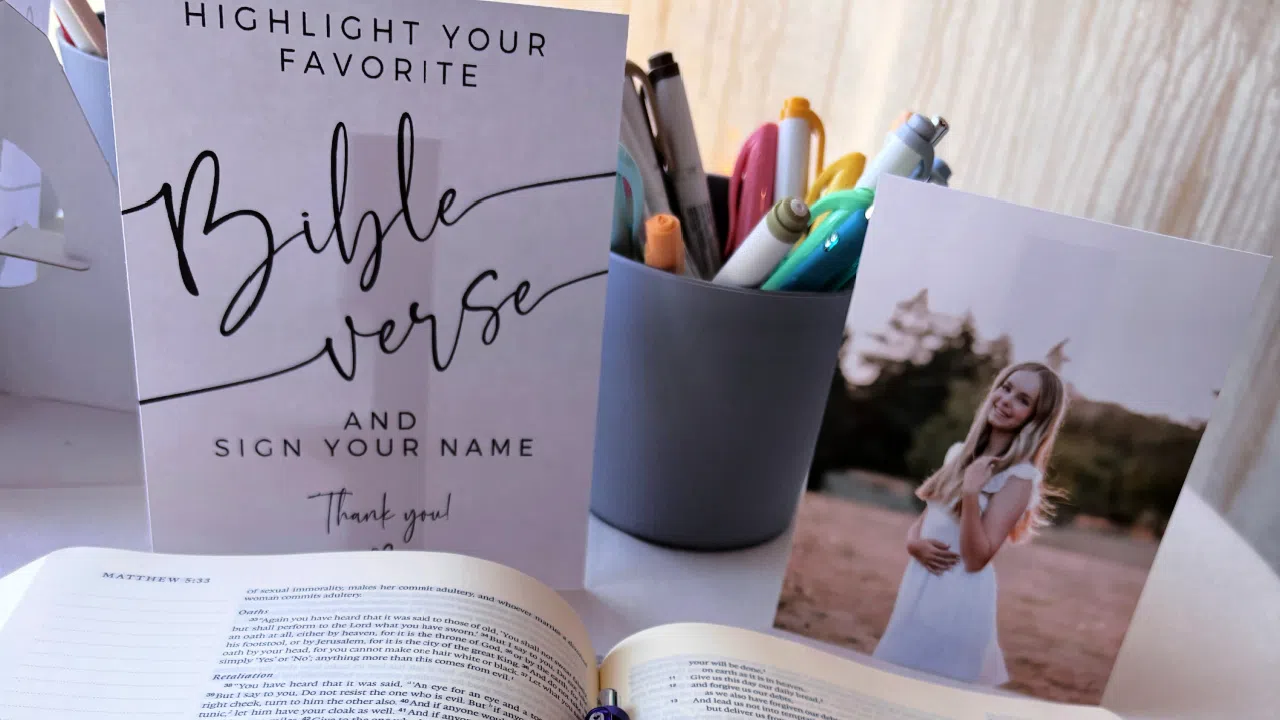 HIGHLIGHT YOUR
FAVORITE
Bible
verse
AND
SIGN YOUR NAME
Thank you!
MATTHEW 5:33
of sexual immorality, makes her commit adultery, and whoever marries a
woman commits adultery.
Oaths
33 "Again you have heard that it was said to those of old, 'You shall not swear
but shall perform to the Lord what you have sworn.' 34 But I say to you, Do not
an oath at all, either by heaven, for it is the throne of God, 35 or by the
his footstool, or by Jerusalem, for it is the city of the great King. 36 And do not
oath by your head, for you cannot make one hair white or black. 37 Let what you
simply 'Yes' or 'No'; anything more than this comes from evil.
Retaliation
38 "You have heard that it was said, 'An eye for an eye and a
39 But I say to you, Do not resist the one who is evil. But if anyone
right cheek, turn to him the other also. 40 And if anyone would
tunic, let him have your cloak as well. 41 And if anyone
miles. 42 Give to the one
your will be done,
on earth as it is in heaven.
11 Give us this day our daily bread,
12 and forgive us our debts,
as we also have forgiven our debtors
13 And lead us not into temptation
but deliver us from